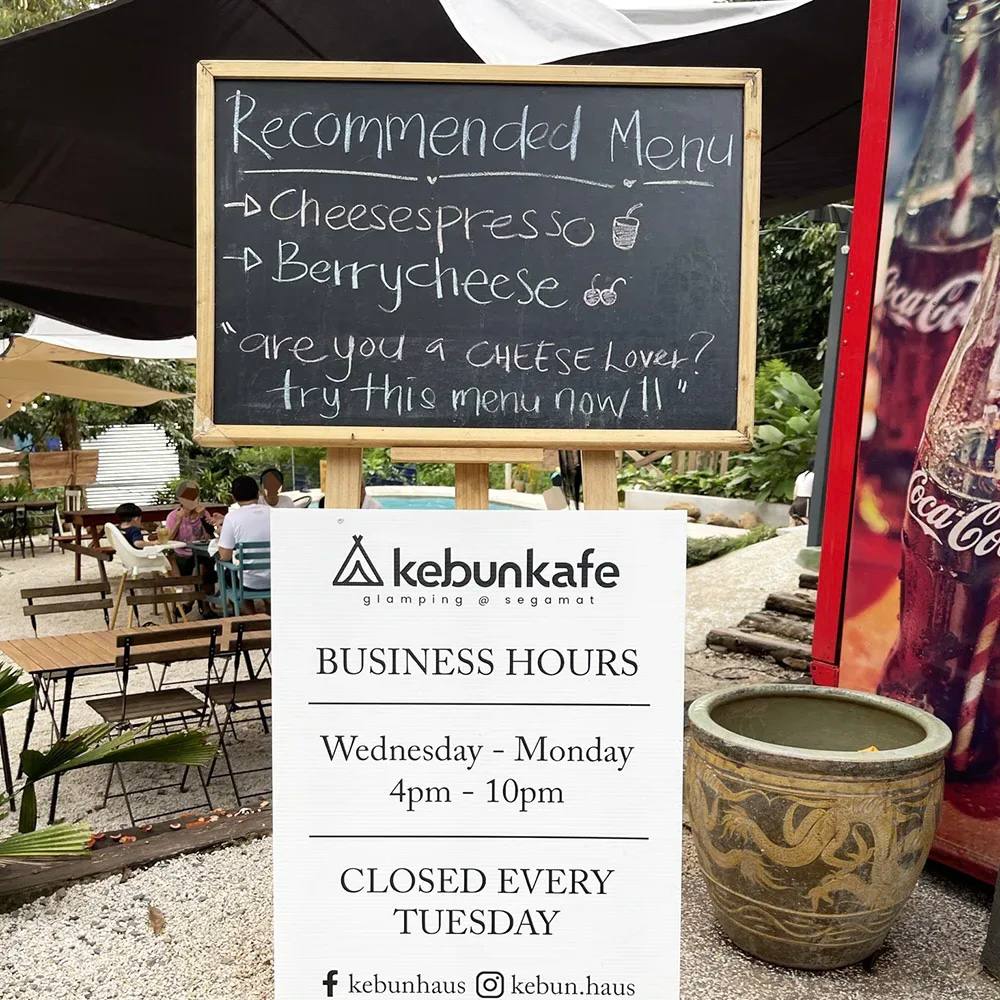 Recommended Menu
Cheesespresso
Berrycheese
"are you a CHEESE Lover?
try this menu now!!"
kebunkafe
glamping @ segamat
BUSINESS HOURS
Wednesday - Monday
4pm - 10pm
CLOSED EVERY
TUESDAY
kebunhaus kebun.haus
Coca-Co
Coca-Co